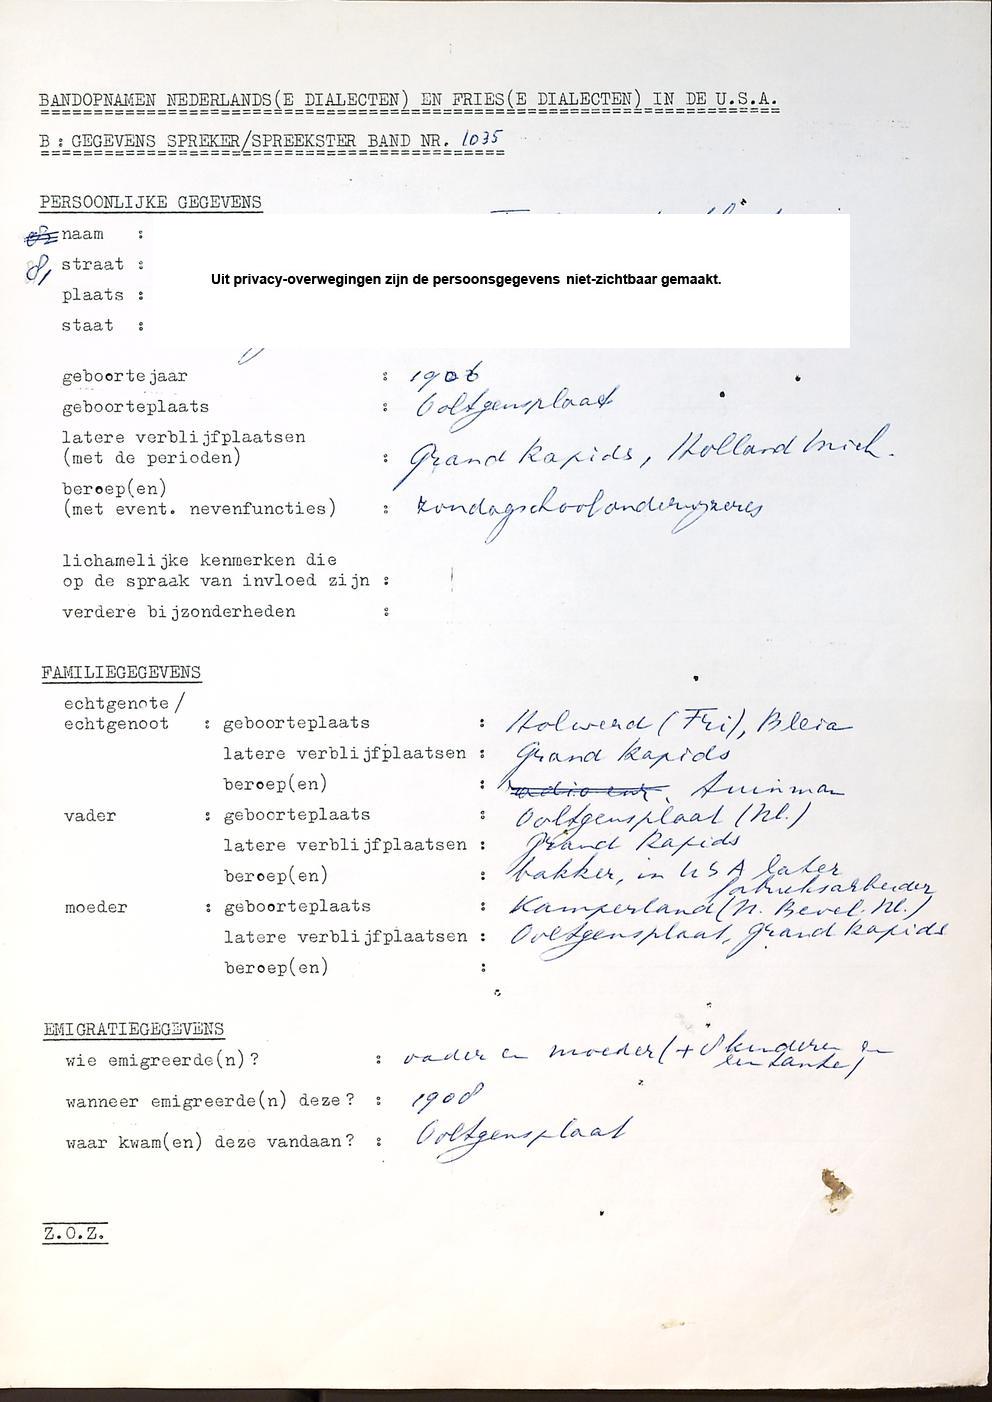 BANDOPNAMEN NEDERLANDS(E DIALECTEN) EN FRIES(E DIALECTEN) IN DE U.S.A.
B: GEGEVENS SPREKER/SPREEKSTER BAND NR. 1035
PERSOONLIJKE GEGEVENS
naam :
8, straat :
Uit privacy-overwegingen zijn de persoonsgegevens niet-zichtbaar gemaakt.
plaats :
staat :
geboortejaar : 1906
geboorteplaats : Ooltgensplaat
latere verblijfplaatsen
(met de perioden) : Grand Rapids, Holland Mich.
beroep(en)
(met event. nevenfuncties) : zondagschoolonderwijzeres
lichamelijke kenmerken die
op de spraak van invloed zijn :
verdere bijzonderheden :
FAMILIEGEGEVENS
echtgenote/
echtgenoot : geboorteplaats : Holwerd (Fri), Bleia
latere verblijfplaatsen : Grand Rapids
beroep(en) : tuinman
vader : geboorteplaats : Ooltgensplaat (Nl.)
latere verblijfplaatsen : Grand Rapids
beroep(en) : bakker, in USA later
fabrieksarbeider
moeder : geboorteplaats : Kamperland (N. Bevel. Nl.)
latere verblijfplaatsen : Ooltgensplaat, Grand Rapids
beroep(en) :
EMIGRATIEGEGEVENS
wie emigreerde(n)? : vader en moeder (+ 8 kinderen en
een tante)
wanneer emigreerde(n) deze? : 1908
waar kwam(en) deze vandaan? : Ooltgensplaat
Z.O.Z.